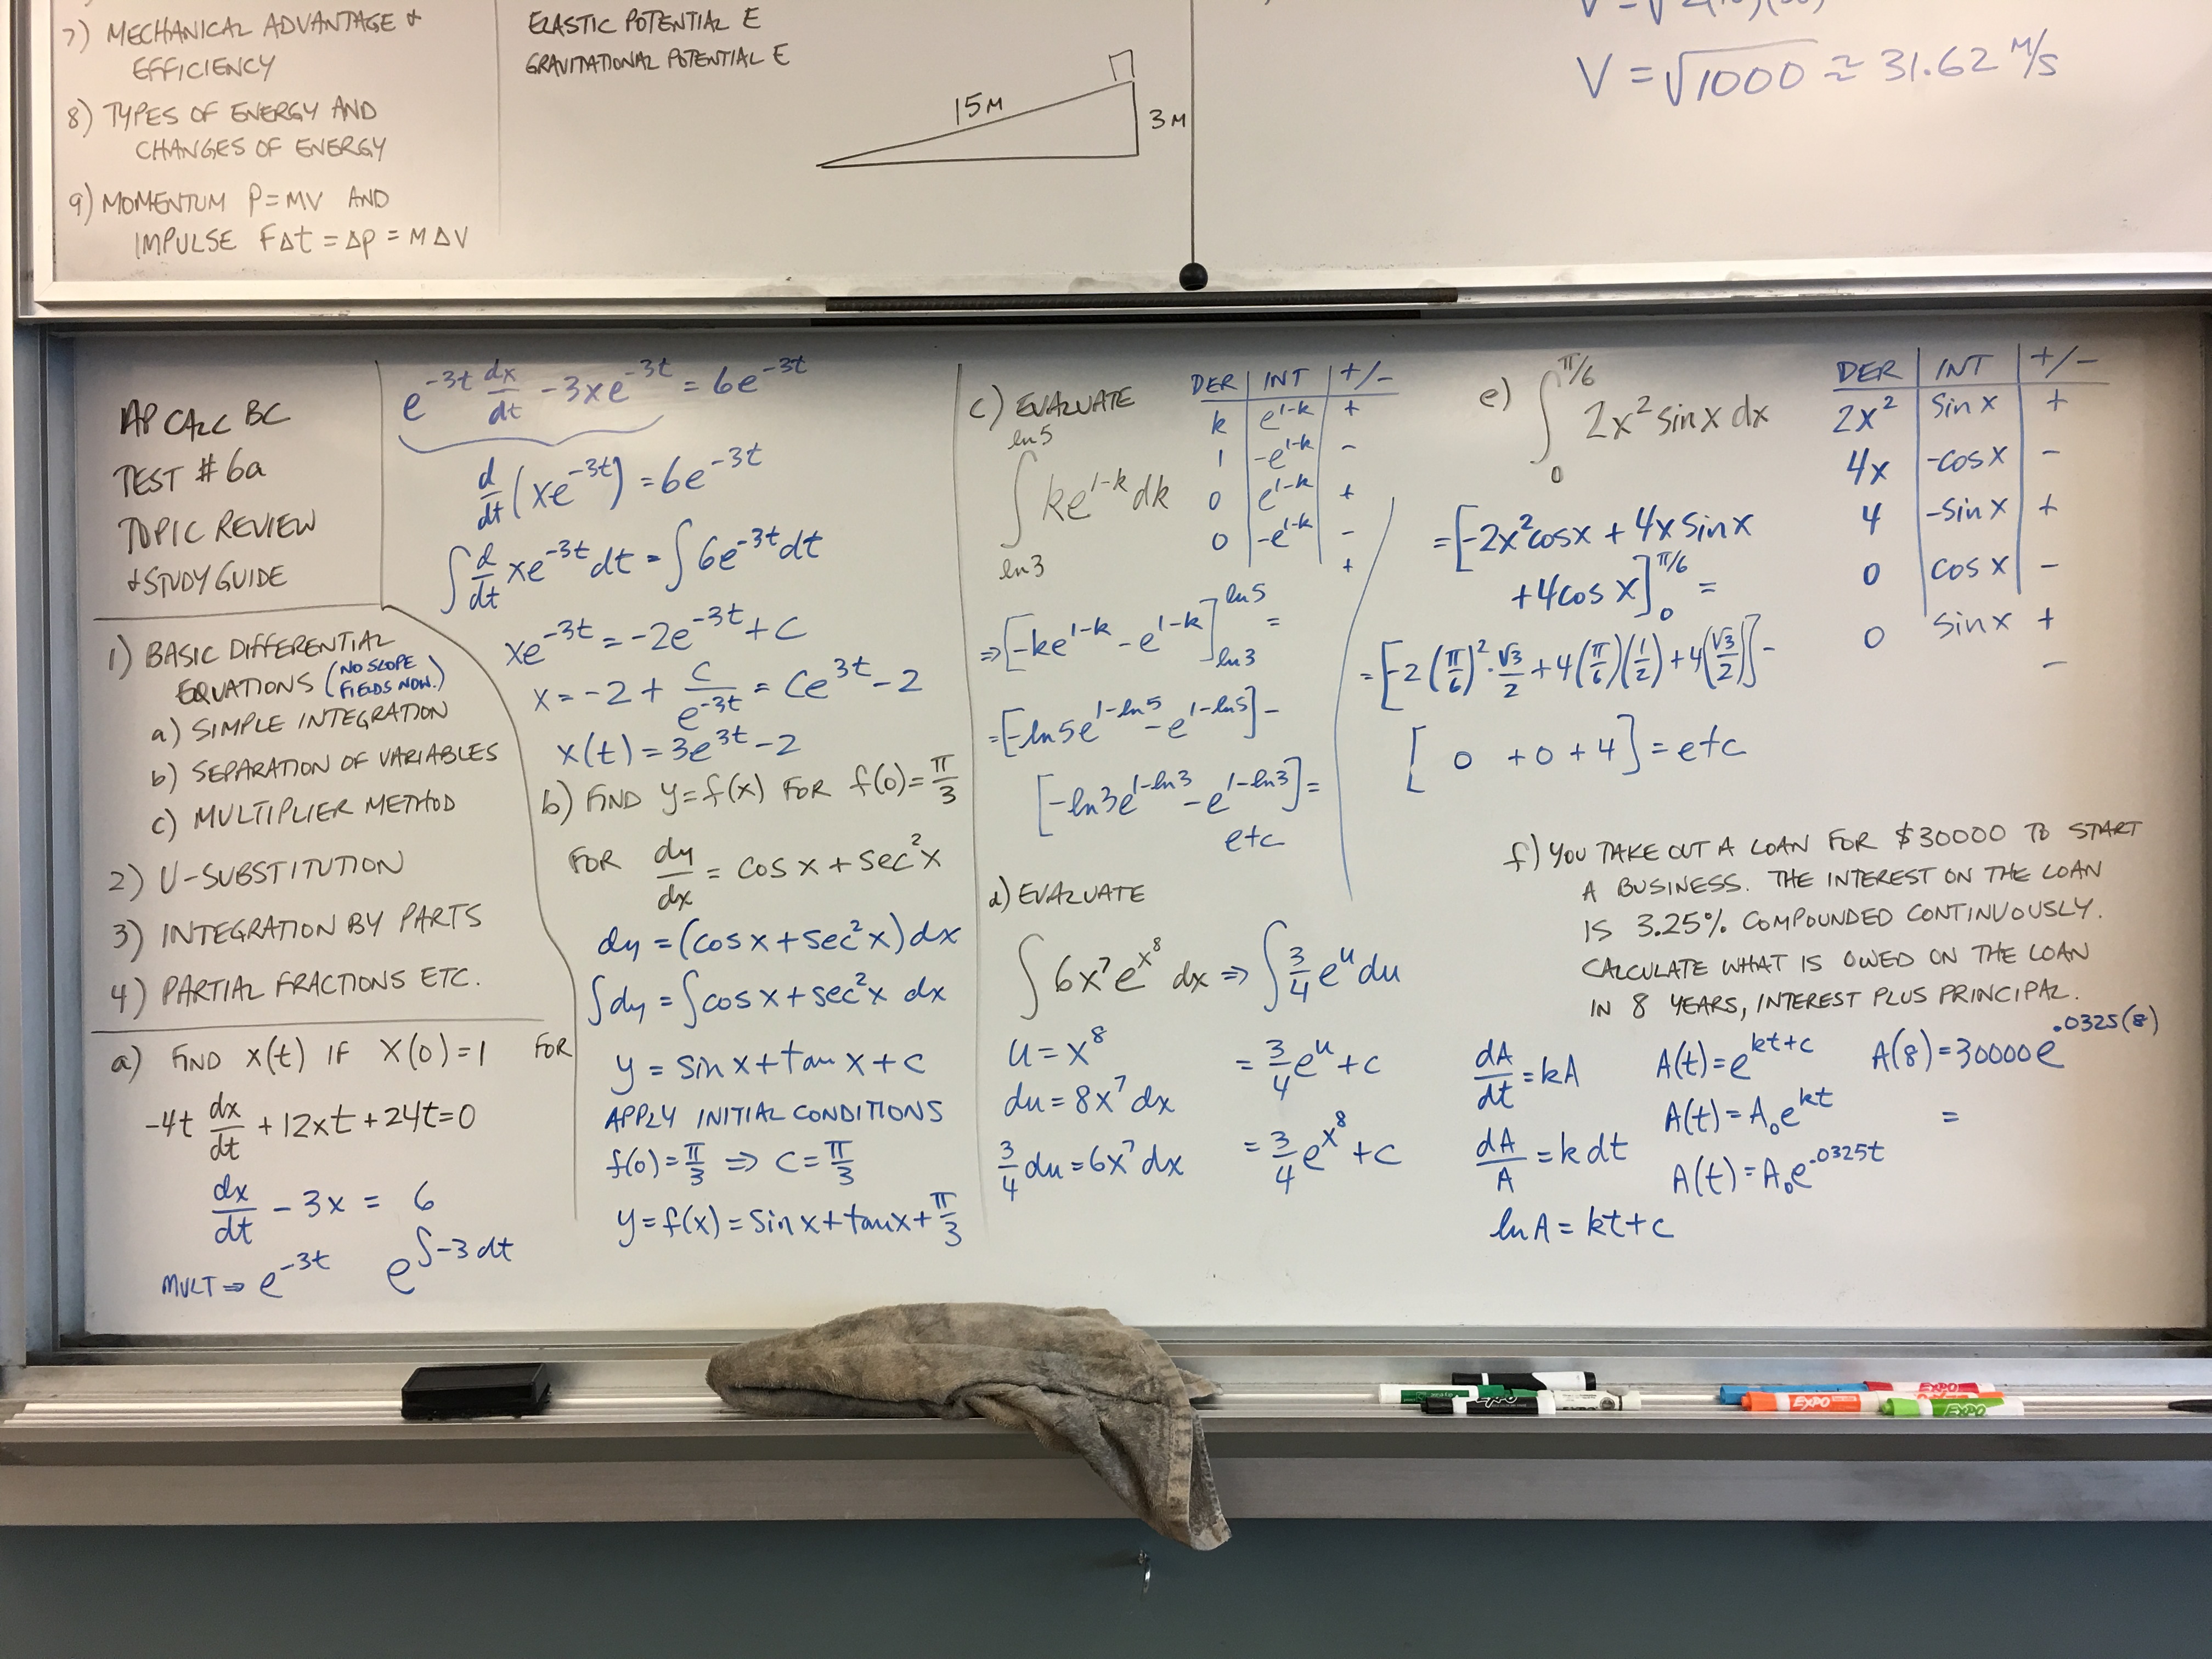 7) MECHANICAL ADVANTAGE &
EFFICIENCY
8) TYPES OF ENERGY AND
CHANGES OF ENERGY
9) MOMENTUM P=MV AND
IMPULSE FΔt = ΔP = MΔV
ELASTIC POTENTIAL E
GRAVITATIONAL POTENTIAL E
15M
3M
V = √1000 ≈ 31.62 M/S
AP CALC BC
TEST # 6a
TOPIC REVIEW
& STUDY GUIDE
1) BASIC DIFFERENTIAL
EQUATIONS (NO SLOPE
FIELDS NOW.)
a) SIMPLE INTEGRATION
b) SEPARATION OF VARIABLES
c) MULTIPLIER METHOD
2) U-SUBSTITUTION
3) INTEGRATION BY PARTS
4) PARTIAL FRACTIONS ETC.
a) FIND x(t) IF X(0)=1 FOR
-4t dx/dt + 12xt + 24t = 0
dx/dt - 3x = 6
MULT ⇒ e^(-3t) e^(∫-3dt)
e^(-3t) dx/dt - 3xe^(-3t) = 6e^(-3t)
d/dt (xe^(-3t)) = 6e^(-3t)
∫ d/dt xe^(-3t) dt = ∫ 6e^(-3t) dt
xe^(-3t) = -2e^(-3t) + C
x = -2 + C/e^(-3t) = Ce^(3t) - 2
x(t) = 3e^(3t) - 2
b) FIND y=f(x) FOR f(0)=π/3
FOR dy/dx = cos x + sec²x
dy = (cos x + sec²x) dx
∫dy = ∫cos x + sec²x dx
y = sin x + tan x + C
APPLY INITIAL CONDITIONS
f(0) = π/3 ⇒ C = π/3
y = f(x) = sin x + tan x + π/3
c) EVALUATE
∫_(ln3)^(ln5) ke^(1-k) dk
DER | INT | +/-
k | e^(1-k) | +
1 | -e^(1-k) | -
0 | e^(1-k) | +
0 | -e^(1-k) | -
+
⇒ [-ke^(1-k) - e^(1-k)]_(ln3)^(ln5) =
= [-ln5e^(1-ln5) - e^(1-ln5)] -
[-ln3e^(1-ln3) - e^(1-ln3)] =
etc
d) EVALUATE
∫ 6x⁷e^(x⁸) dx ⇒ ∫ 3/4 e^u du
u = x⁸
= 3/4 e^u + C
du = 8x⁷ dx
3/4 du = 6x⁷ dx
= 3/4 e^(x⁸) + C
e) ∫_0^(π/6) 2x² sin x dx
DER | INT | +/-
2x² | sin x | +
4x | -cos x | -
4 | -sin x | +
0 | cos x | -
0 | sin x | +
-
= [-2x²cos x + 4x sin x
+ 4cos x]_0^(π/6) =
= [-2(π/6)²·√3/2 + 4(π/6)(1/2) + 4(√3/2)] -
[0 + 0 + 4] = etc
f) YOU TAKE OUT A LOAN FOR $30000 TO START
A BUSINESS. THE INTEREST ON THE LOAN
IS 3.25% COMPOUNDED CONTINUOUSLY.
CALCULATE WHAT IS OWED ON THE LOAN
IN 8 YEARS, INTEREST PLUS PRINCIPAL.
dA/dt = kA
dA/A = k dt
ln A = kt + C
A(t) = e^(kt+c)
A(t) = A₀e^(kt)
A(t) = A₀e^(.0325t)
A(8) = 30000e^(.0325(8))
=
EXPO
EXPO
EXPO
EXPO
EXPO